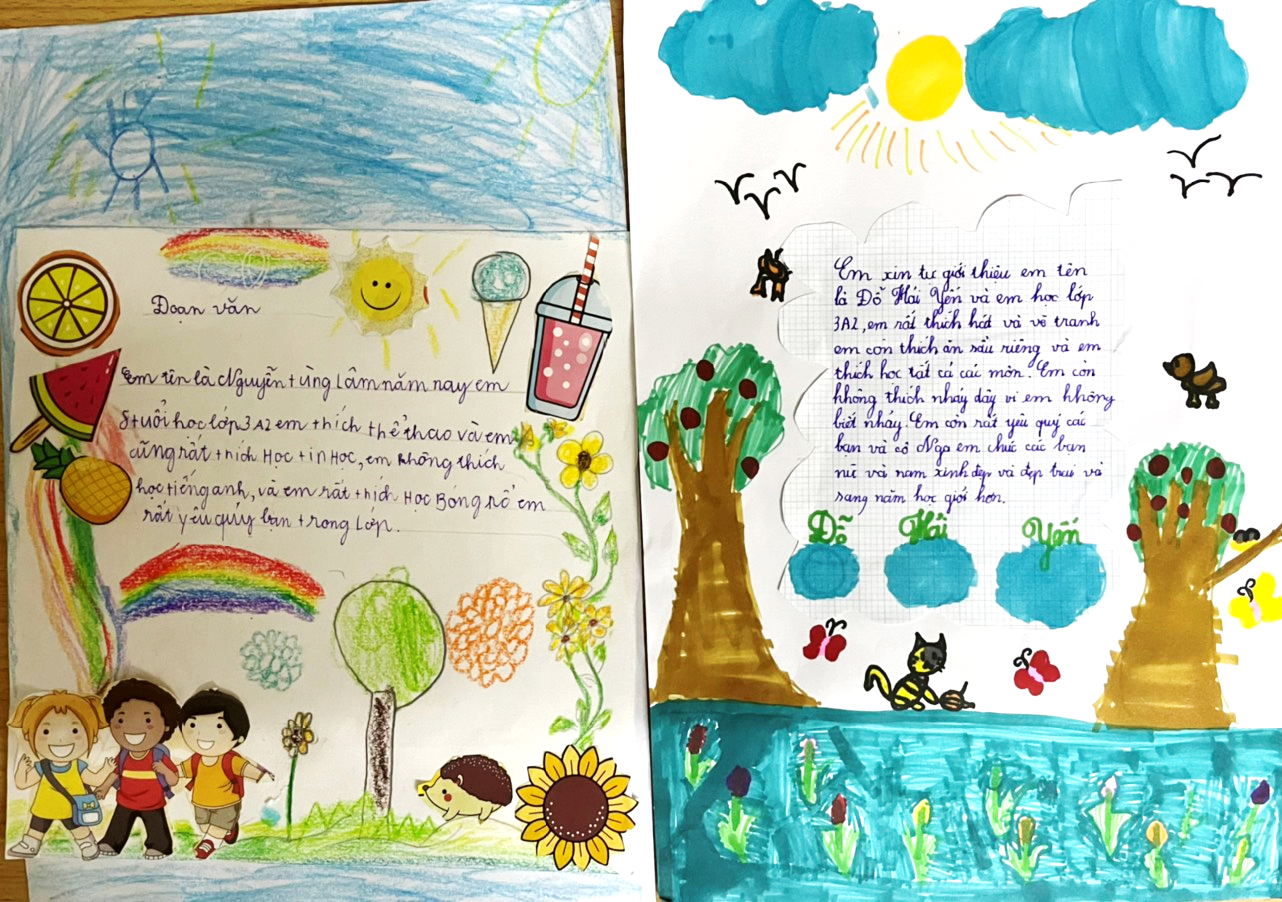 Đoạn văn
Em tên là Nguyễn tùng Lâm năm nay em
8 tuổi học lớp 3A2 em thích thể thao và em
cũng rất thích Học tin Học, em không thích
học tiếng anh, và em rất thích Học Bóng rổ em
rất yêu quý bạn trong Lớp.
Em xin tự giới thiệu em tên
là Đỗ Hải Yến và em học lớp
3A2, em rất thích hát và vẽ tranh
em còn thích ăn sầu riêng và em
thích học tất cả các môn. Em còn
không thích nhảy dây vì em không
biết nhảy. Em còn rất yêu quý các
bạn và cô Nga em chúc các bạn
nữ và nam xinh đẹp và đẹp trai và
sang năm học giỏi hơn.
Đỗ Hải Yến